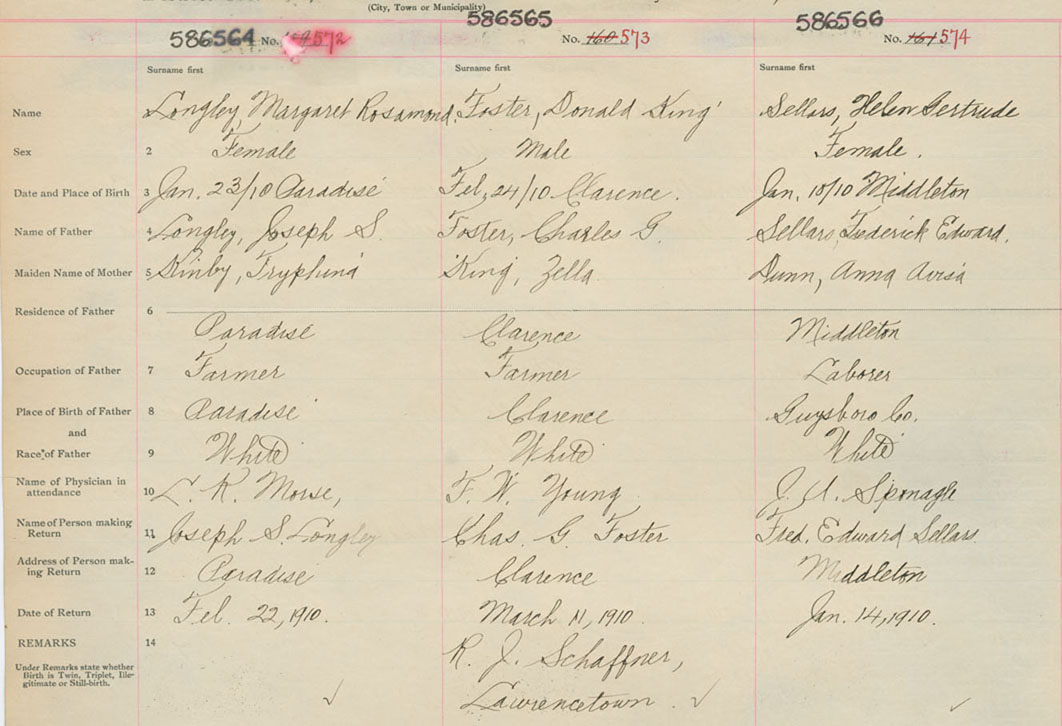 (City, Town or Municipality)
586564 No. 572
586565
No. 160 573
586566
No. 161 574
Surname first Surname first Surname first
Name Longley, Margaret Rosamond. Foster, Donald King Sellars, Helen Gertrude
Sex 2 Female Male Female.
Date and Place of Birth 3 Jan. 23/10 Paradise Feb, 24/10 Clarence. Jan. 10/10 Middleton
Name of Father 4 Longley, Joseph S. Foster, Charles G. Sellars, Frederick Edward.
Maiden Name of Mother 5 Tryphina King, Zella Dunn, Anna Avisa
Residence of Father 6
Paradise Clarence Middleton
Occupation of Father 7 Farmer Farmer Laborer
Place of Birth of Father 8 Paradise Clarence Guysboro Co.
and
Race of Father 9 White White White
Name of Physician in
attendance 10 L. R. Morse, F. W. Young J. A. Sponagle
Name of Person making
Return 11 Joseph S. Longley Chas. G. Foster Fred. Edward Sellars
Address of Person mak-
ing Return 12 Paradise Clarence Middleton
Date of Return 13 Feb. 22, 1910. March 11, 1910 Jan. 14, 1910.
REMARKS 14
R. J. Schaffner,
Under Remarks state whether
Birth is Twin, Triplet, Ille-
gitimate or Still-birth.
Lawrencetown.